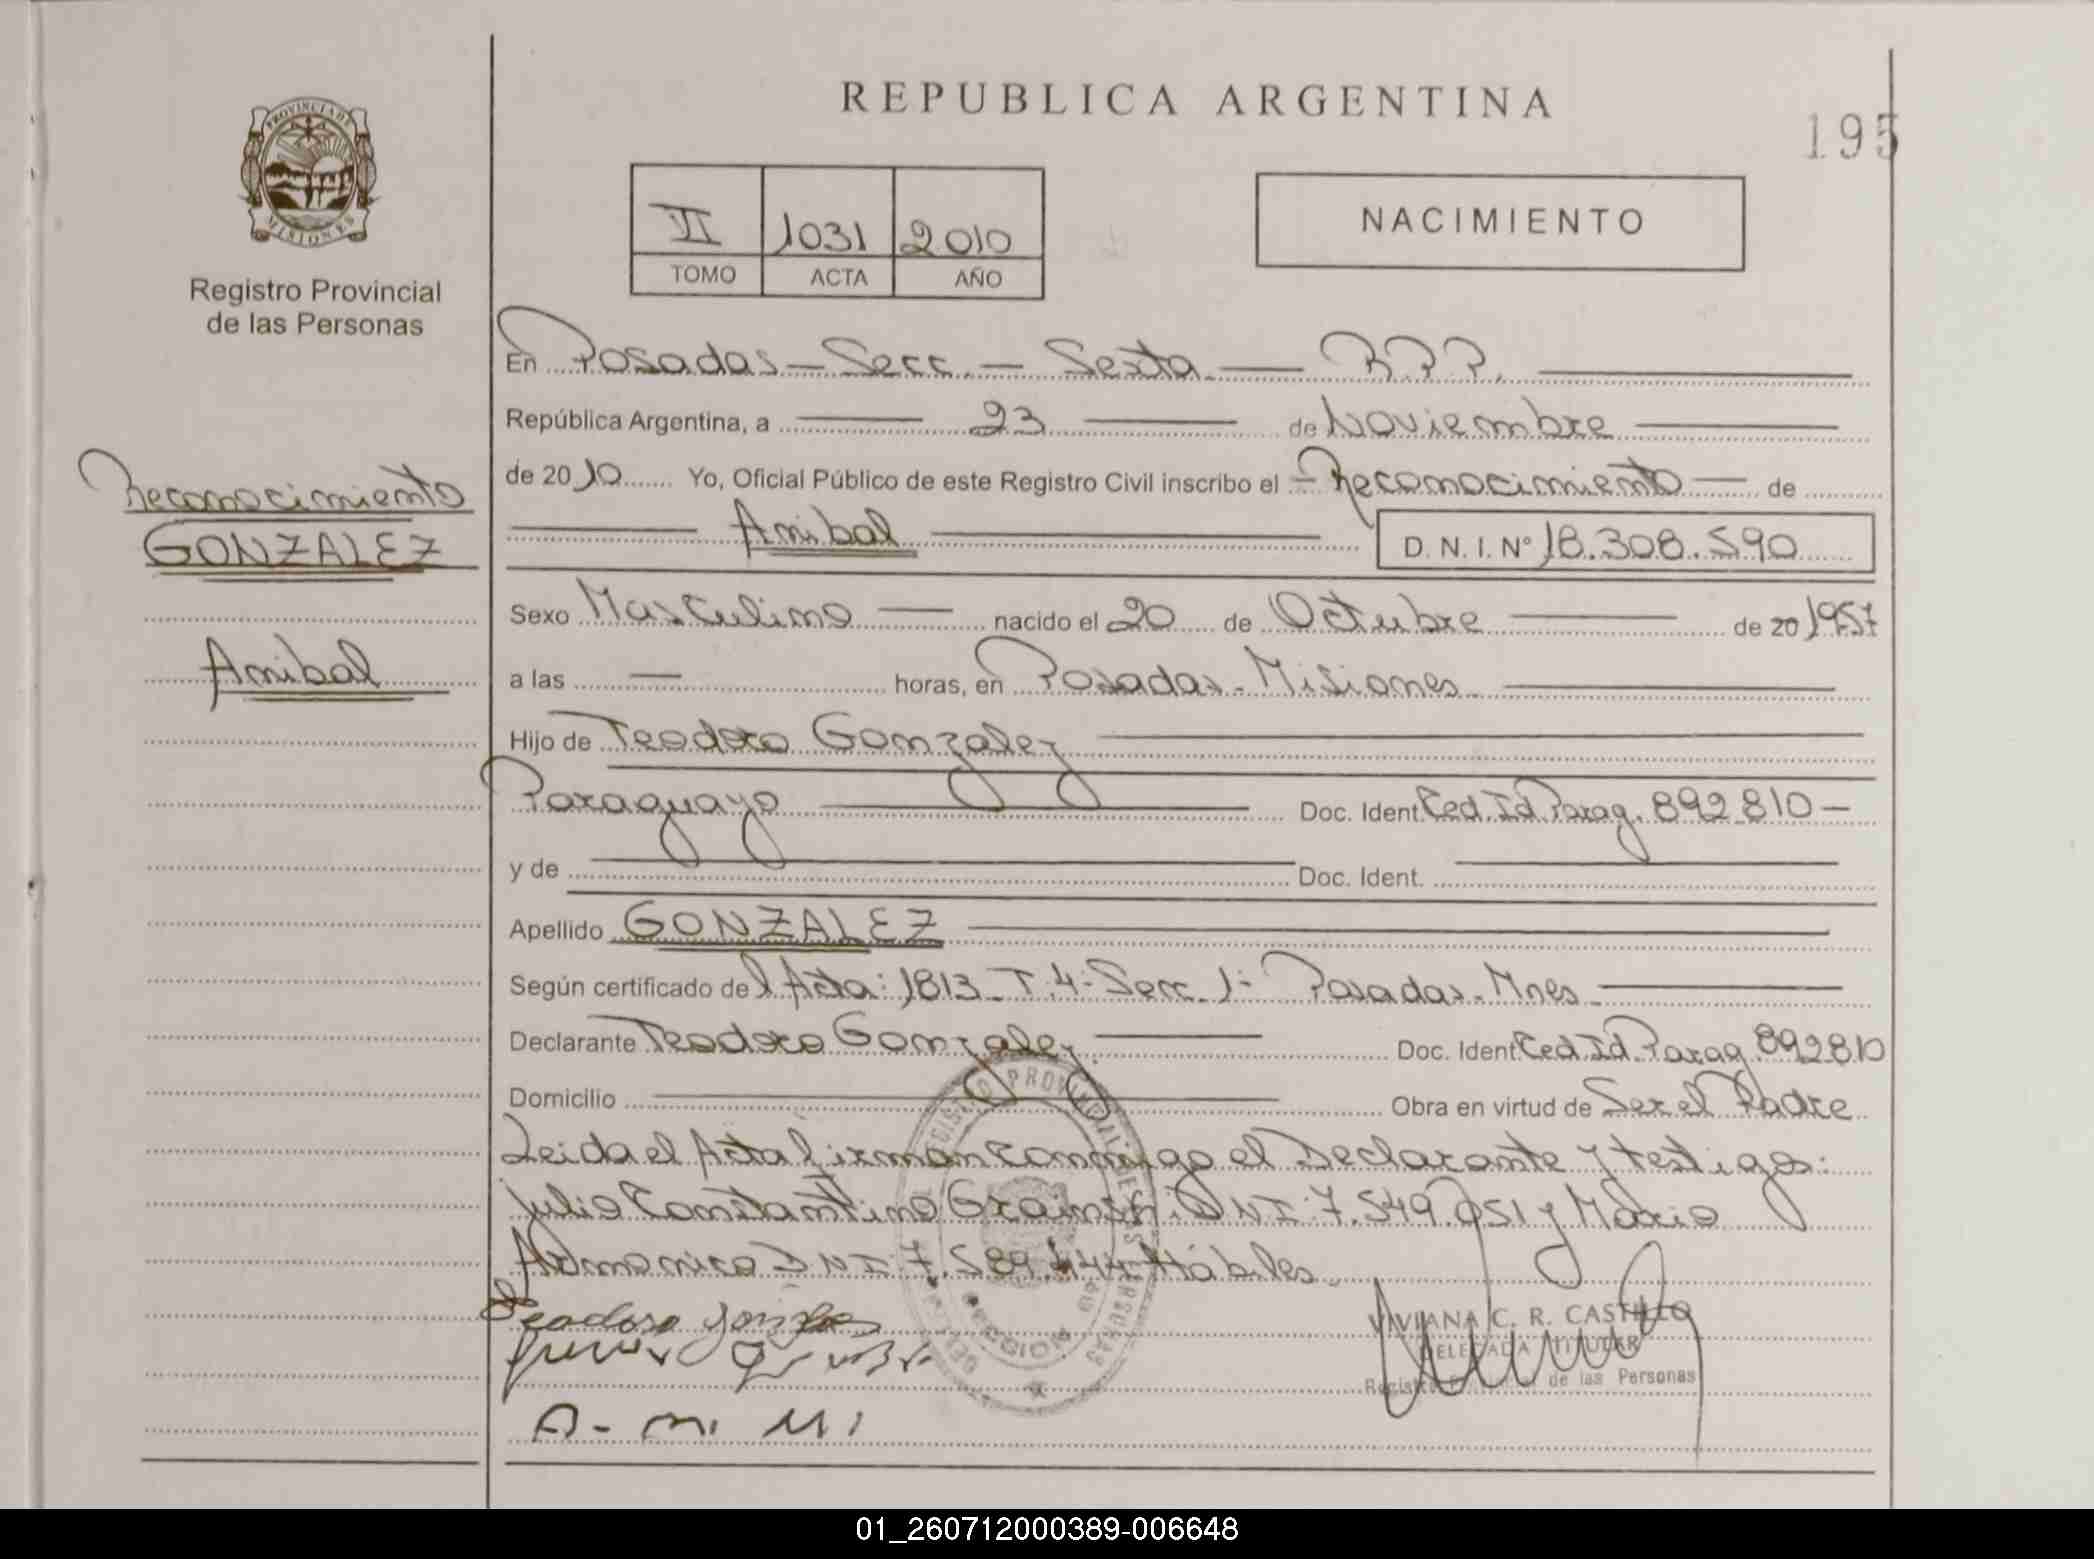 REPUBLICA ARGENTINA
195
PROVINCIA DE MISIONES
Registro Provincial
de las Personas
II 1031 2010
TOMO ACTA AÑO
NACIMIENTO
Reconocimiento
GONZALEZ
Anibal
En Posadas - Secc. - Sexta - R.P.P.
República Argentina, a 23 de Noviembre
de 2010 Yo, Oficial Público de este Registro Civil inscribo el - Reconocimiento - de
Anibal D. N. I. N° 18.308.590
Sexo Masculino nacido el 20 de Octubre de 20 1957
a las — horas, en Posadas - Misiones
Hijo de Teodoro Gonzalez
Paraguayo Doc. Ident. Ced. Id. Parag. 892.810 -
y de Doc. Ident.
Apellido GONZALEZ
Según certificado del Acta: 1813 - T. 4 - Secc. 1 - Posadas - Mnes
Declarante Teodoro Gonzalez Doc. Ident. Ced. Id. Parag. 892.810
Domicilio Obra en virtud de Ser el Padre
Leida el Acta firman conmigo el Declarante y testigos:
Julio Constantino DNI: 7.549.051 y Mario
DNI: 7.589.444 Hábiles.
Teodoro Gonzalez
VIVIANA C. R. CASTILLO
DELEGADA TITULAR
Registro Provincial de las Personas
01_260712000389-006648